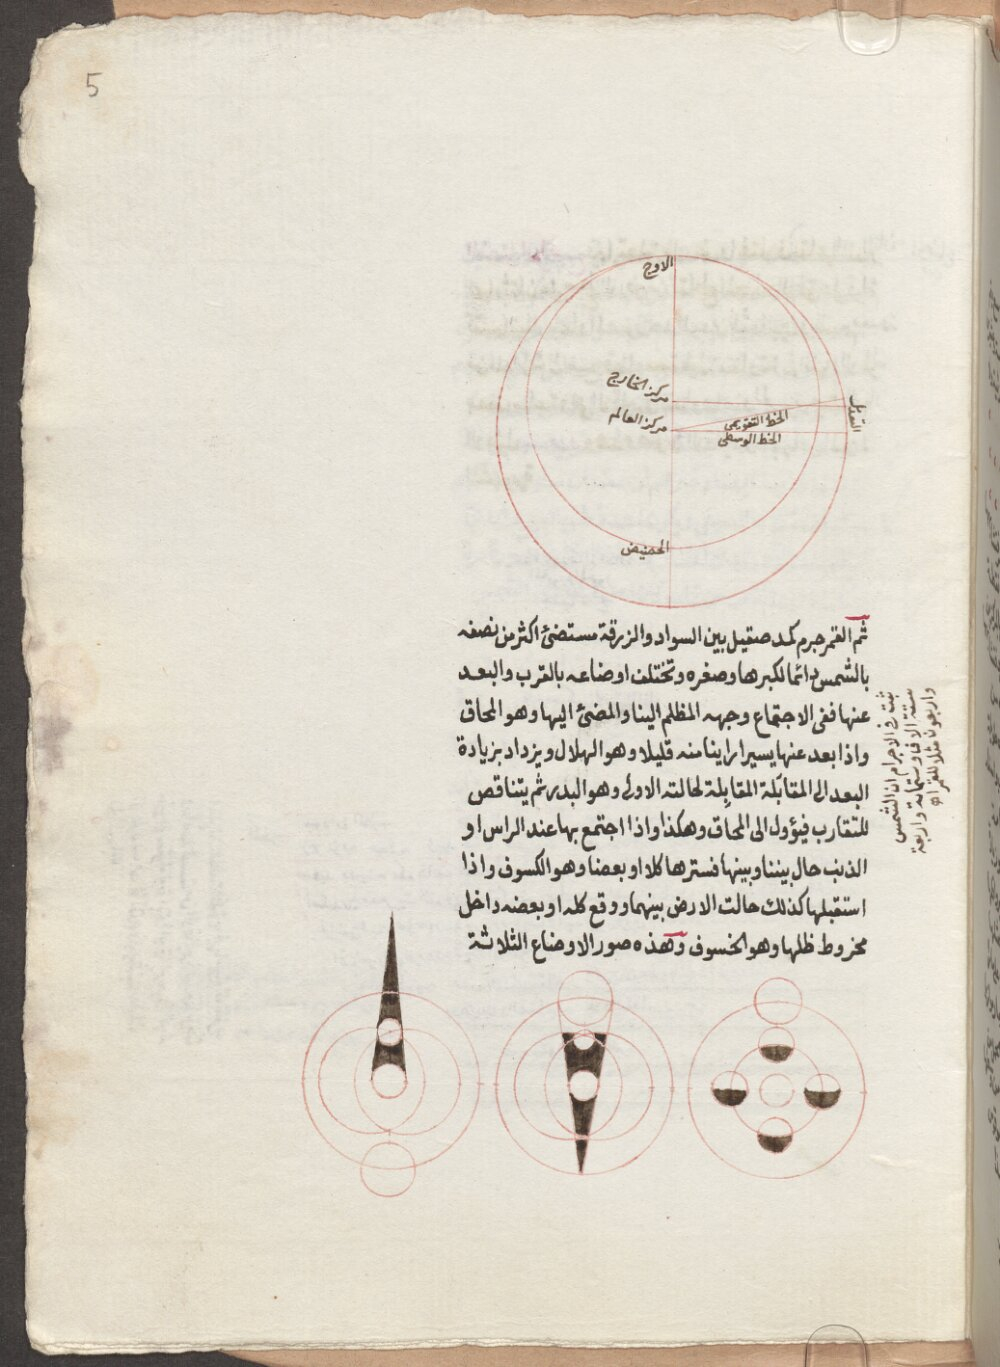 5
الاوج
مركز الخارج
مركز العالم
الخط التقويمى
الخط الوسطى
التعديل
الحضيض
ثم القمر جرم كمد صقيل بين السواد والزرقة مستضئ اكثر من نصفه
بالشمس دائما لكبرها وصغره وتختلف اوضاعه بالقرب والبعد
عنها ففى الاجتماع وجهه المظلم الينا والمضئ اليها وهو المحاق
واذا بعد عنها يسيرا راينا منه قليلا وهو الهلال ويزداد بزيادة
البعد الى المقابلة المقابلة لحالته الاولى وهو البدر ثم يتناقص
للتقارب فيؤول الى المحاق وهكذا واذا اجتمع بها عند الراس او
الذنب حال بيننا وبينها فسترها كلا او بعضا وهو الكسوف واذا
استقبلها كذلك حالت الارض بينهما ووقع كله او بعضه داخل
مخروط ظلها وهو الخسوف وهذه صور الاوضاع الثلاثة
ثبت فى الاجرام ان الشمس
ستة الاف وستمائة واربعة
واربعون مثلا للقمر